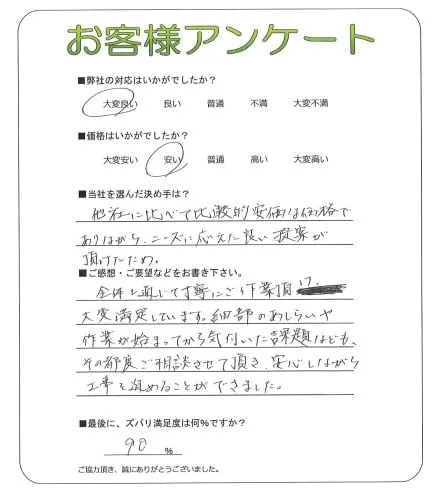 お客様アンケート
■弊社の対応はいかがでしたか?
大変良い 良い 普通 不満 大変不満
■価格はいかがでしたか?
大変安い 安い 普通 高い 大変高い
■当社を選んだ決め手は?
他社に比べて比較的安価な価格で
ありながら、ニーズに応えた良い提案が
頂けたため。
■ご感想・ご要望などをお書き下さい。
全体を通じて丁寧にご作業頂け
大変満足しています。細部のあしらいや
作業が始まってから気付いた課題なども、
その都度ご相談させて頂き、安心しながら
工事を進めることができました。
■最後に、ズバリ満足度は何%ですか?
90 %
ご協力頂き、誠にありがとうございました。